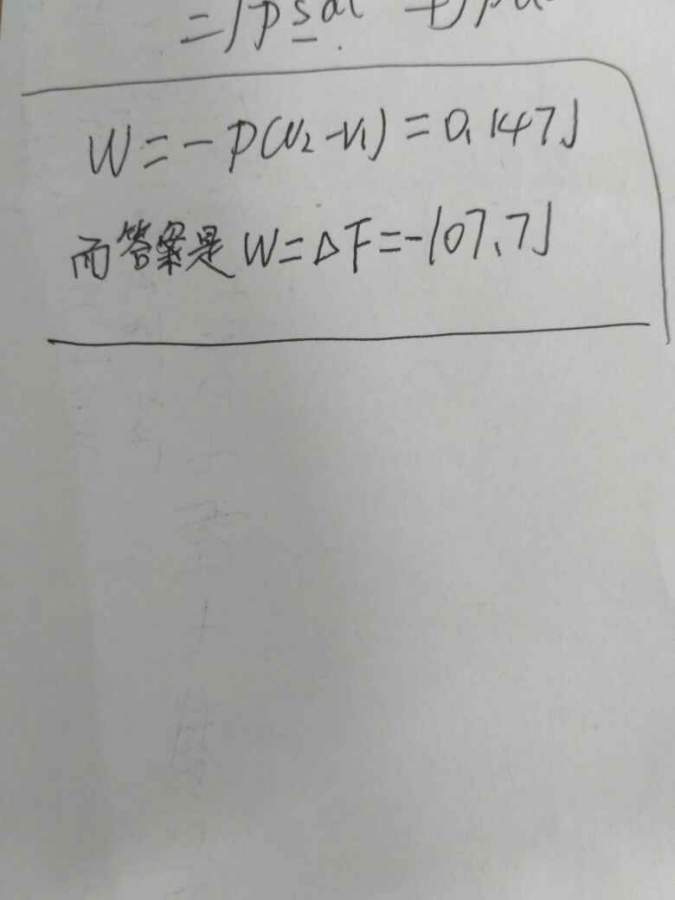 W=-P(V₂-V₁)=0.147J
而答案是W=ΔF=-107.7J